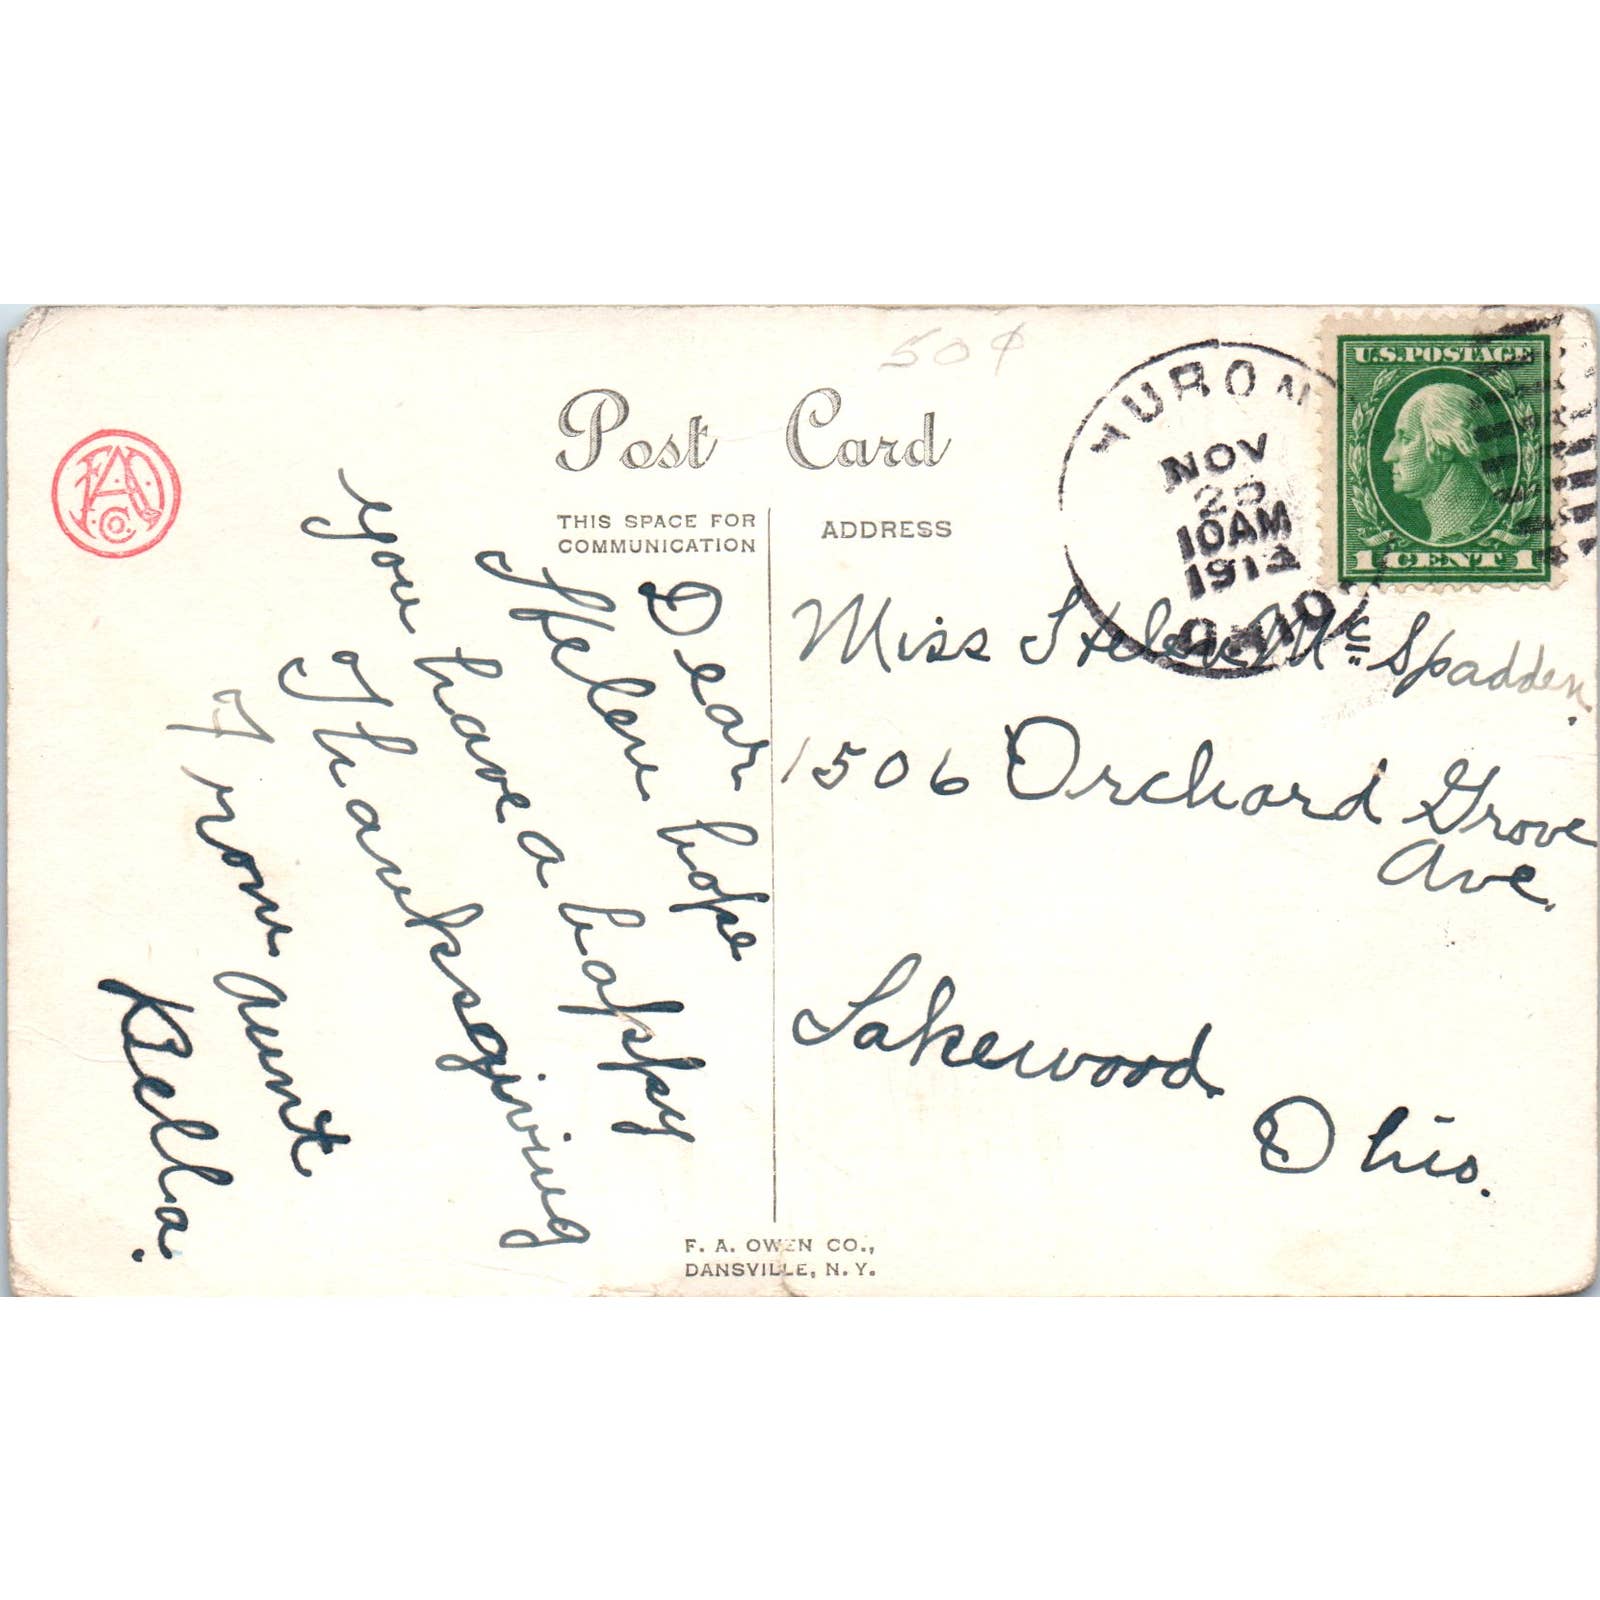 50¢
Post Card
THIS SPACE FOR
COMMUNICATION
ADDRESS
HURON
NOV
25
10AM
OHIO
U.S. POSTAGE
1 CENT 1
F.A.O.
Co.
Dear hope
Helen
you have a happy
Thanksgiving
From aunt
Bella.
Miss Helen Mc Spadden.
1506 Orchard Grove
Ave.
Lakewood
Ohio.
F. A. OWEN CO.,
DANSVILLE, N. Y.